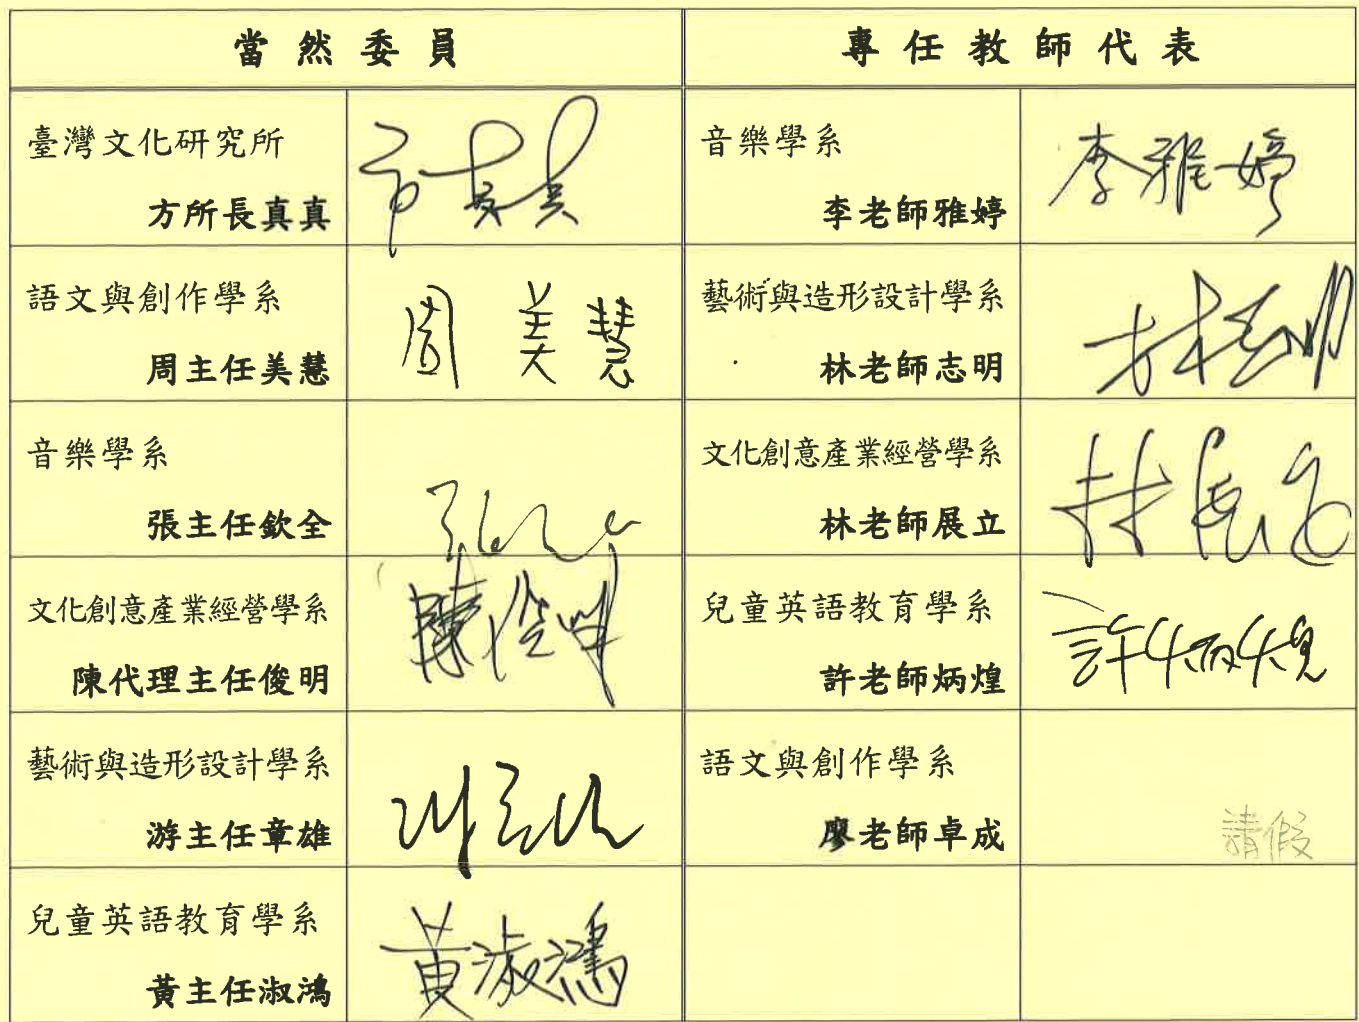 當然委員
專任教師代表
臺灣文化研究所
方所長真真
方真真
音樂學系
李老師雅婷
李雅婷
語文與創作學系
周主任美慧
周美慧
藝術與造形設計學系
林老師志明
林志明
音樂學系
張主任欽全
文化創意產業經營學系
林老師展立
林展立
文化創意產業經營學系
陳代理主任俊明
陳俊明
兒童英語教育學系
許老師炳煌
許炳煌
藝術與造形設計學系
游主任章雄
語文與創作學系
廖老師卓成
請假
兒童英語教育學系
黃主任淑鴻
黃淑鴻